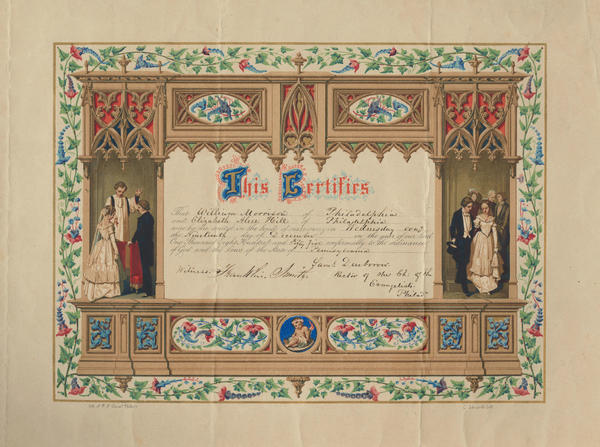 This Certifies
That William Morrison of Philadelphia
and Elizabeth Alice Hill of Philadelphia
were by me united in the bonds of matrimony on Wednesday even
in the year of our Lord
One Thousand eight Hundred and Fifty Five conformably to the ordinance
of God and the laws of the State of Pennsylvania
Witness. Franklin Smith
Rector of the Ch. of the
Evangelists
Philad